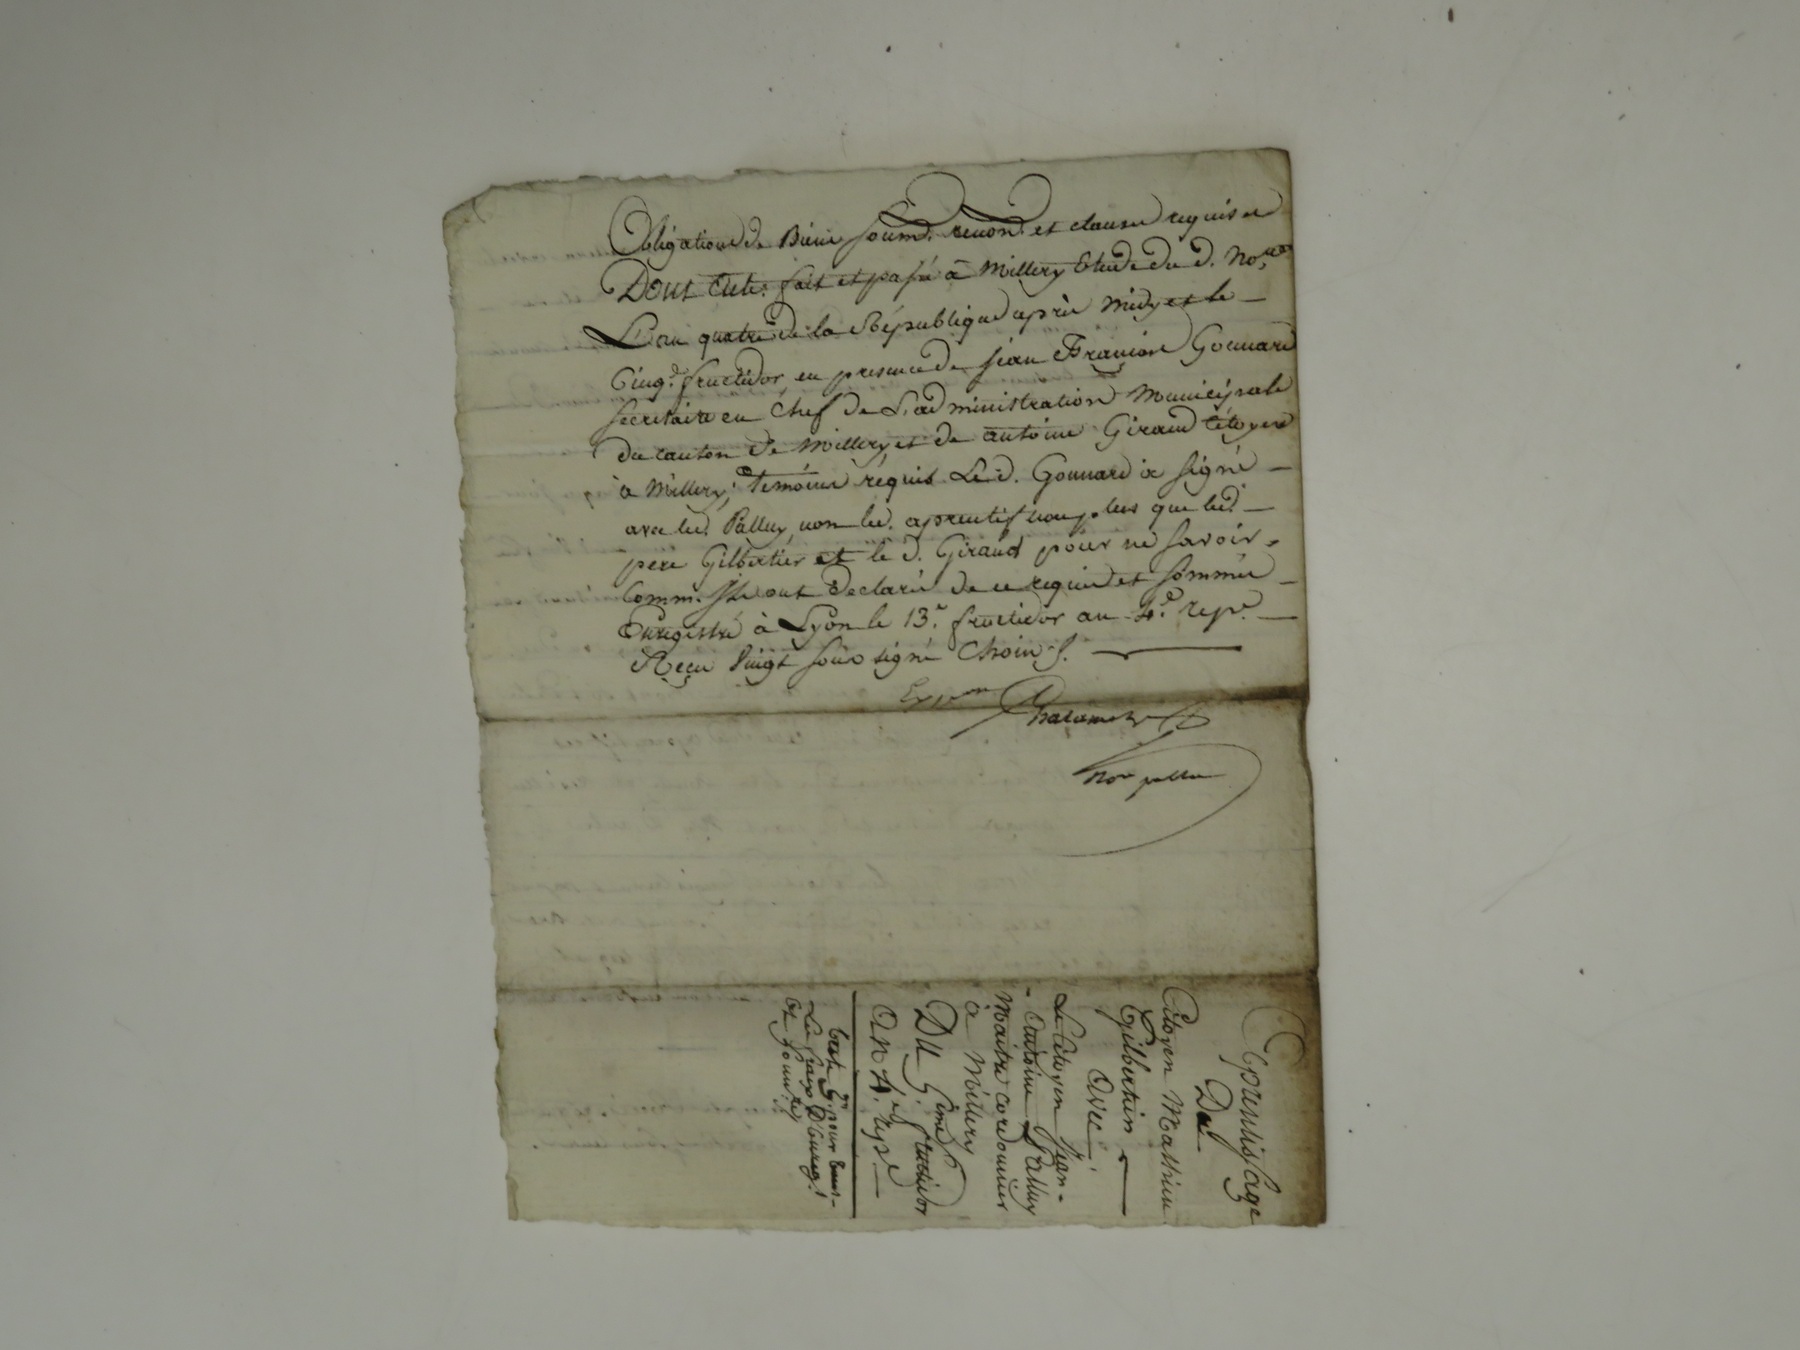 Obligations de Biens soumd. renond. et clauses requises
Dont acte: fait et passé à Millery Etude du d. Nore.
L'an quatre de la République après midy et le —
Cinq.e fructidor, en presence de jean François Gonnard
secretaire en chef de L'administration Municipale
du canton de Millery, et de antoine Giraud citoyen
à Millery, temoins réquis Le d. Gonnard a signé —
avec led. Palluy, non led. aprentif non plus que led. —
père Gilbertier et le d. Giraud pour ne savoir.
Comm. Ils ont declaré de ce requis et sommés —
Enregistré à Lyon le 13.e fructidor an 4.e repe. —
Reçu Vingt sous signé Choin f.
Exp.on
nore palluy
Aprentissage
Du
Citoyen Mathieu
Gilbertier
Avec
Le Citoyen jean-
- Antoine Palluy
Maitre cordonnier
à Millery
DU 5.eme fructidor
AN 4.e repe —
et four.res